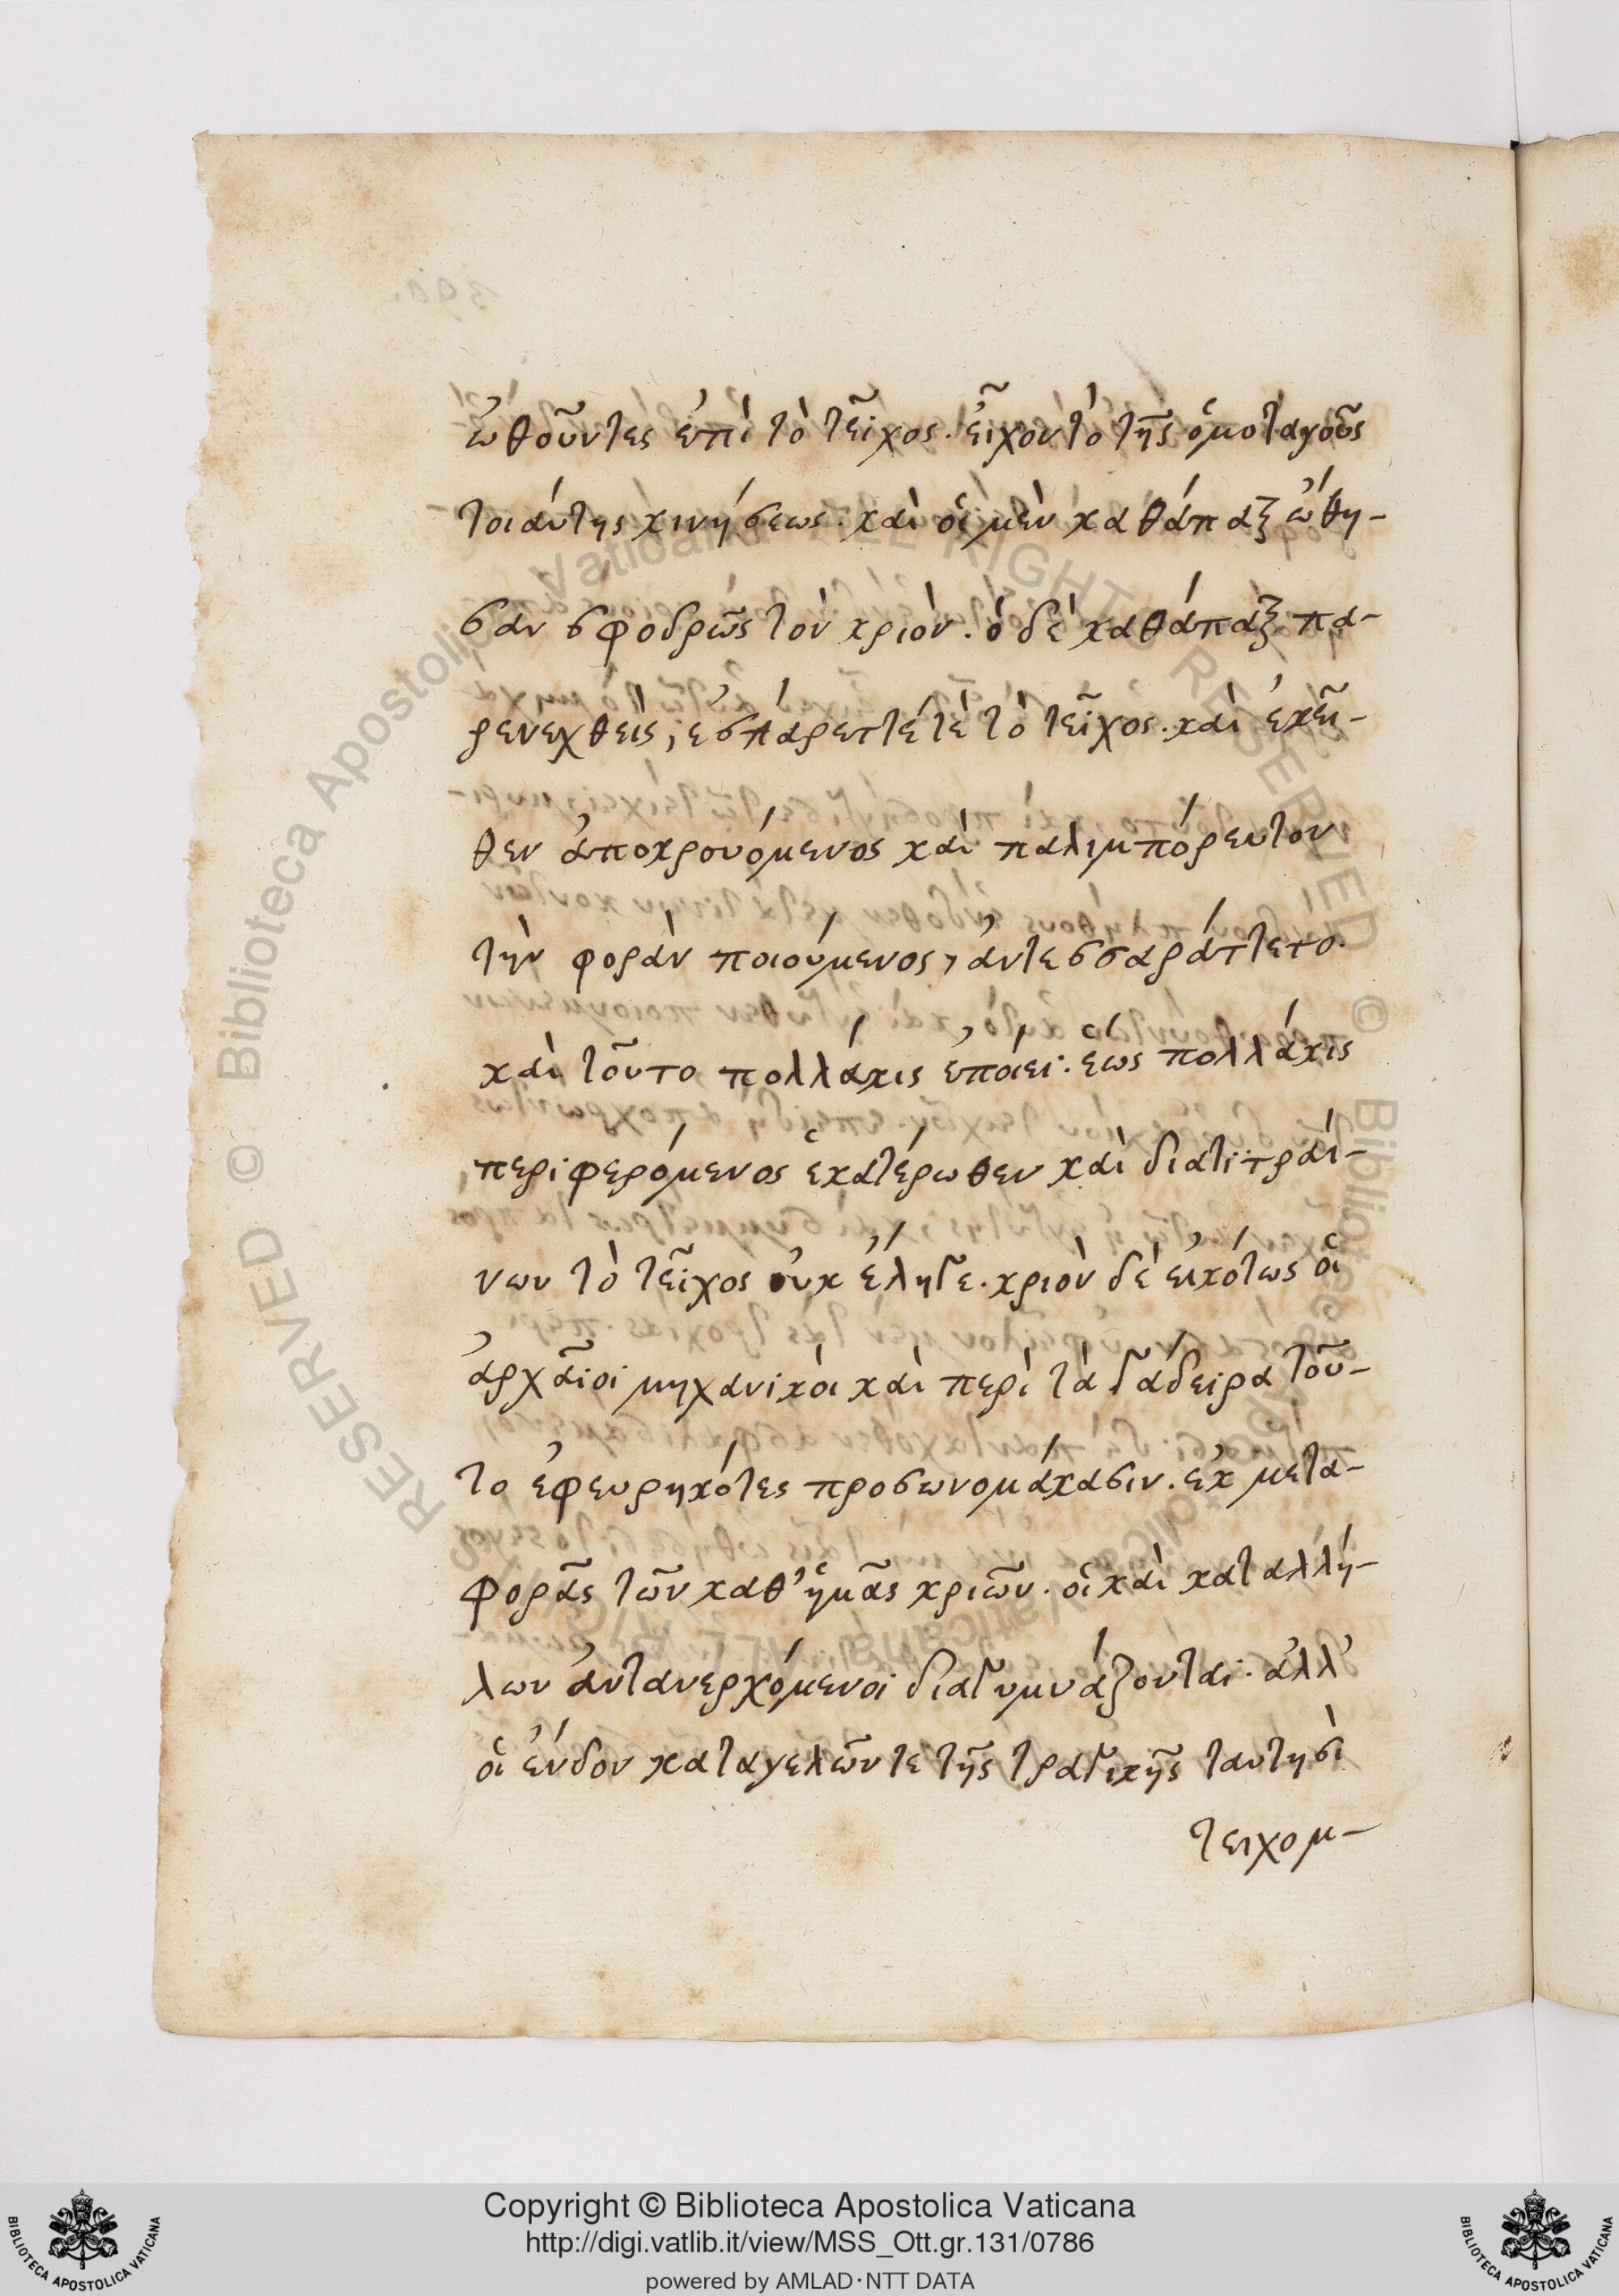 ὠθοῦντες ἐπὶ τὸ τεῖχος. εἶχοντο τῆς ὁμοταγοῦς
τοιαύτης κινήσεως. καὶ οἱ μὲν καθάπαξ ὤθη-
σαν σφοδρῶς τὸν κριὸν. ὁ δὲ καθάπαξ πα-
ρενεχθεὶς, τὸ τεῖχος. καὶ ἐκεῖ-
θεν ἀποκρουόμενος καὶ παλιμπόρευτον
τὴν φορὰν ποιούμενος, ἀντεσσαράττετο.
καὶ τοῦτο πολλάκις ἐποίει. ἕως πολλάκις
περιφερόμενος ἑκατέρωθεν καὶ διατιτραί-
νων τὸ τεῖχος οὐκ ἔληγε. κριὸν δὲ εἰκότως οἱ
ἀρχαῖοι μηχανικοὶ καὶ περὶ τὰ γάδειρα τοῦ-
το ἐφευρηκότες προσωνομάκασιν. ἐκ μετα-
φορᾶς τῶν καθ' ἡμᾶς κριῶν. οἳ καὶ κατ αλλή-
λων ἀντανερχόμενοι διαγυμνάζονται. ἀλλ'
οἱ ἔνδον καταγελῶντε τῆς τραγικῆς ταυτησὶ
τειχομ-
Copyright © Biblioteca Apostolica Vaticana
http://digi.vatlib.it/view/MSS_Ott.gr.131/0786
powered by AMLAD·NTT DATA
BIBLIOTECA APOSTOLICA VATICANA
BIBLIOTECA APOSTOLICA VATICANA